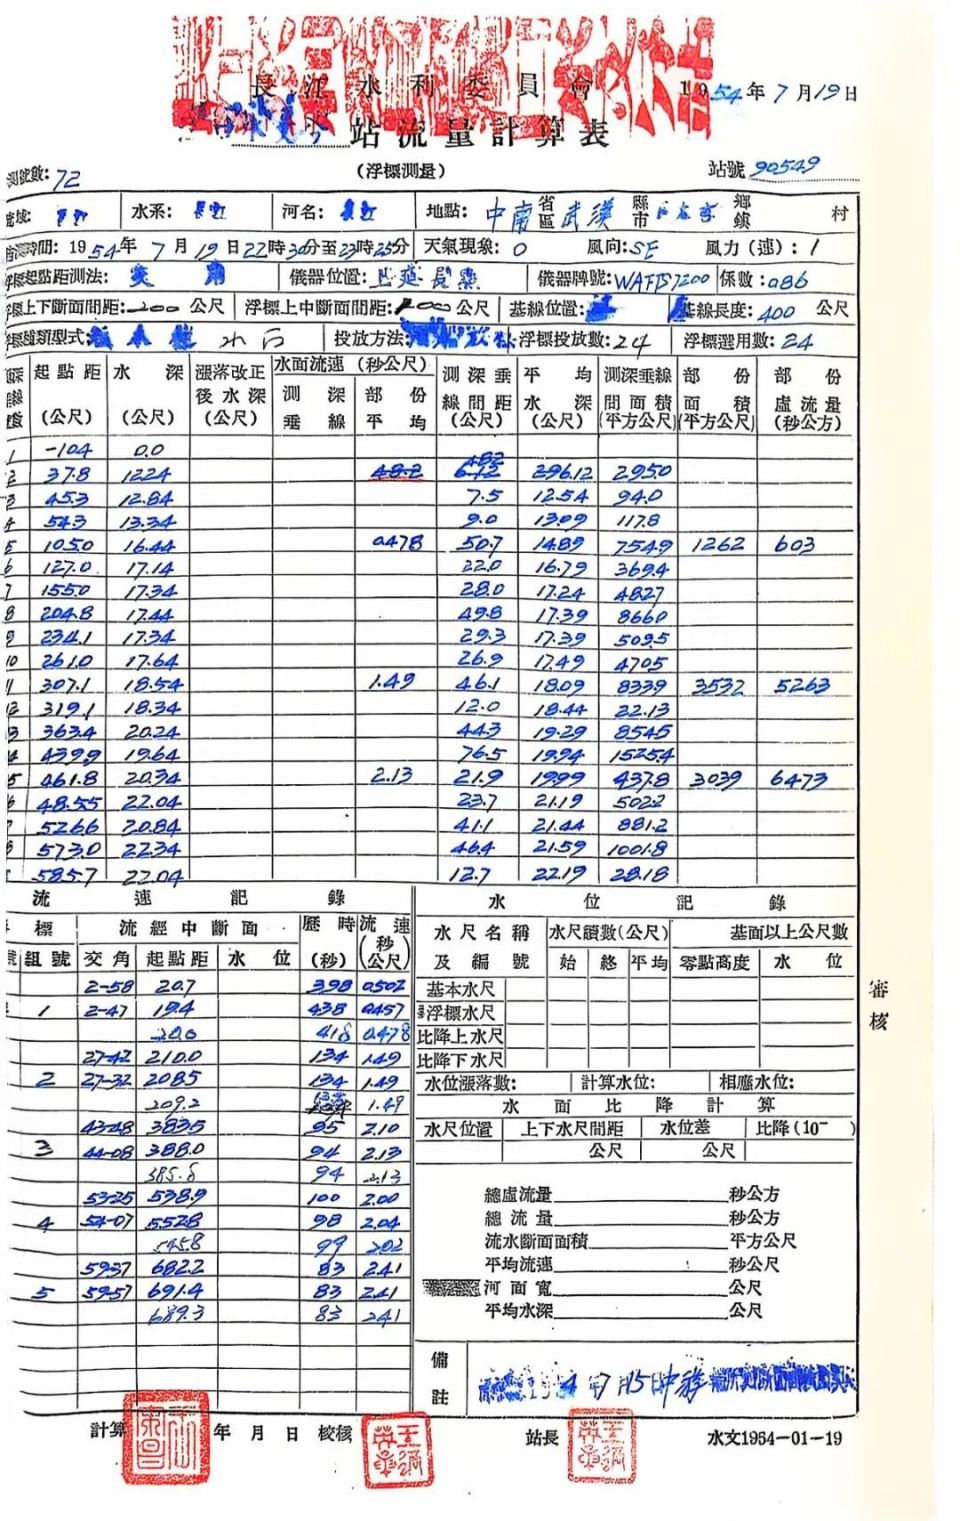 長江水利委員會 1954年7月19日
站流量計算表
(浮標測量)
測號數: 72 站號 90549
水系: 河名: 地點: 中南 省區 武漢 縣市 鄉鎮 村
時間: 1954年7月19日22時30分至23時25分 天氣現象: 0 風向: SE 風力(速): 1
浮標起點距測法: 交角 儀器位置: 儀器牌號: WAFTS7200 係數: 0.86
浮標上下斷面間距: 200 公尺 浮標上中斷面間距: 100 公尺 基線位置: 基線長度: 400 公尺
浮標種類型式: 投放方法: 浮標投放數: 24 浮標選用數: 24
起點距(公尺) 水深(公尺) 漲落改正後水深 水面流速(秒公尺) 測深垂線 部份平均 測深垂線間距(公尺) 平均水深(公尺) 測深垂線間面積(平方公尺) 部份面積(平方公尺) 部份虛流量(秒公方)
1 -10.4 0.0
2 37.8 12.24 48.2 482 6.12 296.12 295.0
3 45.3 12.84 7.5 12.54 94.0
4 54.3 13.34 9.0 13.09 117.8
5 105.0 16.44 0.478 50.7 14.89 754.9 1262 603
6 127.0 17.14 22.0 16.79 369.4
7 155.0 17.34 28.0 17.24 482.7
8 204.8 17.44 49.8 17.39 866.0
9 234.1 17.34 29.3 17.39 509.5
10 261.0 17.64 26.9 17.49 470.5
11 307.1 18.54 1.49 46.1 18.09 833.9 3532 5263
12 319.1 18.34 12.0 18.44 22.13
13 363.4 20.24 44.3 19.29 854.5
14 439.9 19.64 76.5 19.94 1525.4
15 461.8 20.34 2.13 21.9 19.99 437.8 3039 6473
6 48.55 22.04 23.7 21.19 502.2
7 526.6 20.84 41.1 21.44 881.2
8 573.0 22.34 46.4 21.59 1001.8
585.7 22.04 12.7 22.19 28.18
流速記錄 水位記錄
標 流經中斷面 歷時(秒) 流速(秒公尺) 水尺名稱及編號 水尺讀數(公尺) 基面以上公尺數
組號 交角 起點距 水位 始 終 平均 零點高度 水位
2-58 20.7 398 0.502 基本水尺
1 2-47 19.4 438 0.457 浮標水尺
20.0 418 0.478 比降上水尺
27-42 210.0 134 1.49 比降下水尺
2 27-32 208.5 134 1.49 水位漲落數: 計算水位: 相應水位:
209.2 1.49 水面比降計算
43-48 383.5 95 2.10 水尺位置 上下水尺間距 水位差 比降(10⁻ )
3 44-08 388.0 94 2.13 公尺 公尺
385.8 94 2.13
53-25 538.9 100 2.00 總虛流量 秒公方
4 54-07 552.8 98 2.04 總流量 秒公方
545.8 99 2.02 流水斷面面積 平方公尺
59-37 682.2 83 2.41 平均流速 秒公尺
5 59-57 691.4 83 2.41 河面寬 公尺
689.3 83 2.41 平均水深 公尺
備註
計算 年 月 日 校核 站長 水文1954-01-19
審核